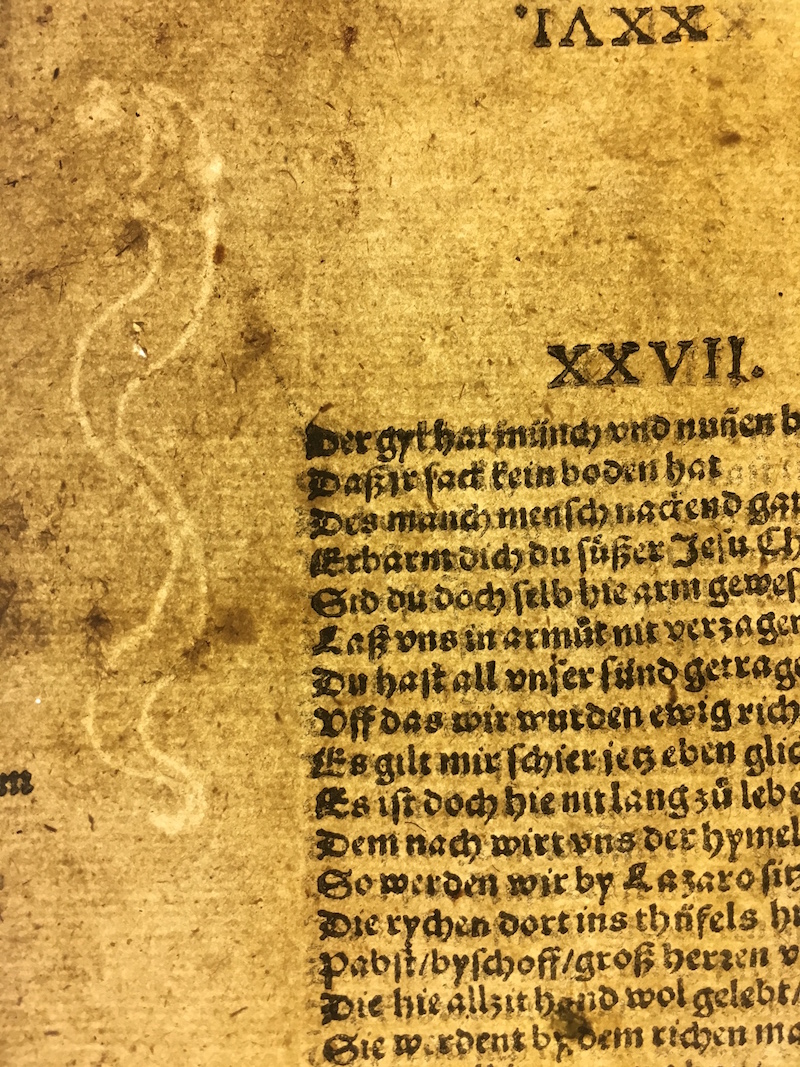 XXVI.
XXVII.
Der gyt hat münch vnd nuñen b
Daß jr sack kein boden hat
Des manch mensch nackend gat
Erbarm dich du süßer Jesu Ch
Sid du doch selb hie arm gewes
Laß vns in armůt nit verzagen
Du hast all vnser sünd getrage
Vff das wir wurden ewig rich
Es gilt mir schier jetz eben glic
Es ist doch hie nit lang zů lebe
Dem nach wirt vns der hymel
So werden wir by Lazaro sitz
Die rychen dort ins thüfels hu
Pabst/byschoff/groß herren v
Die hie allzit hand wol gelebt/
Sie werdent by dem richen ma
m